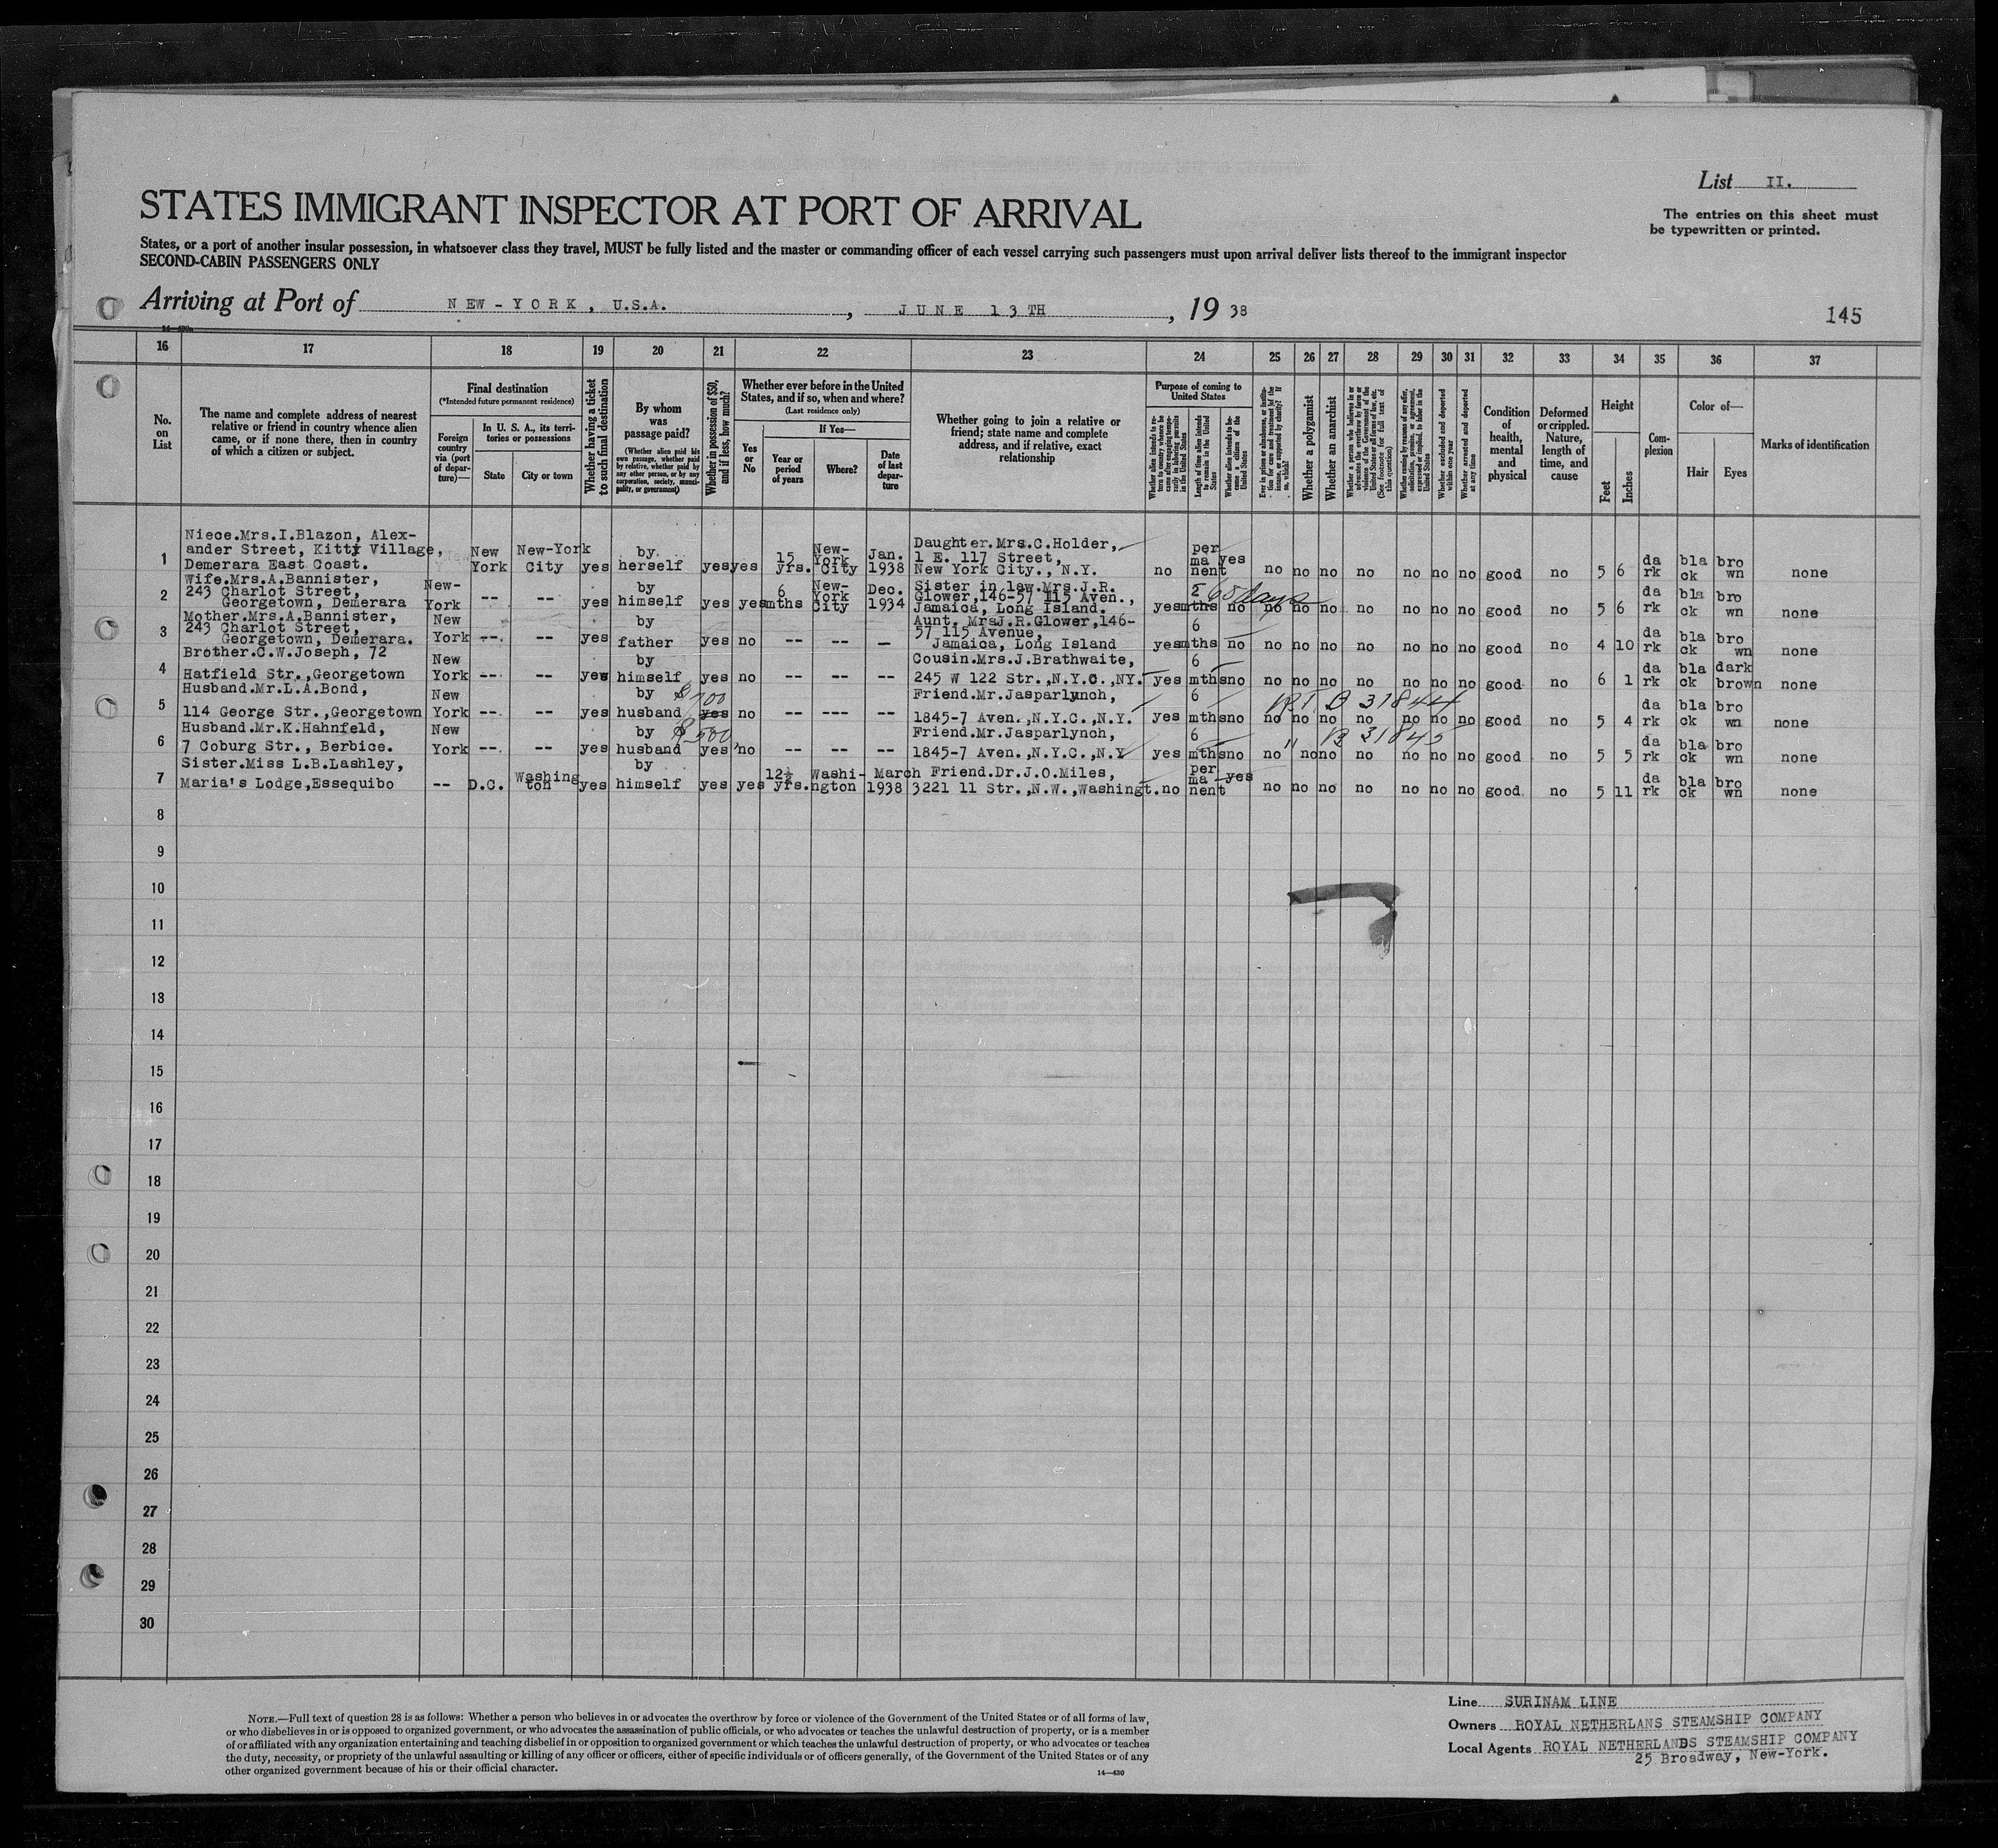 List II.
STATES IMMIGRANT INSPECTOR AT PORT OF ARRIVAL
The entries on this sheet must
be typewritten or printed.
States, or a port of another insular possession, in whatsoever class they travel, MUST be fully listed and the master or commanding officer of each vessel carrying such passengers must upon arrival deliver lists thereof to the immigrant inspector
SECOND-CABIN PASSENGERS ONLY
Arriving at Port of NEW-YORK, U.S.A. , JUNE 13TH , 19 38
145
16 17 18 19 20 21 22 23 24 25 26 27 28 29 30 31 32 33 34 35 36 37
No. on List
The name and complete address of nearest
relative or friend in country whence alien
came, or if none there, then in country
of which a citizen or subject.
Final destination
(*Intended future permanent residence)
Foreign country via (port of departure)—
In U. S. A., its territories or possessions
State
City or town
Whether having a ticket to such final destination
By whom was passage paid?
(Whether alien paid his own passage, whether paid by relative, whether paid by any other person, or by any corporation, society, municipality, or government)
Whether in possession of $50, and if less, how much?
Whether ever before in the United States, and if so, when and where?
(Last residence only)
Yes or No
If Yes—
Year or period of years
Where?
Date of last departure
Whether going to join a relative or
friend; state name and complete
address, and if relative, exact
relationship
Purpose of coming to United States
Whether alien intends to return to country whence he came after engaging temporarily in laboring pursuits in the United States
Length of time alien intends to remain in the United States
Whether alien intends to become a citizen of the United States
Ever in prison or almshouse, or institution for care and treatment of the insane, or supported by charity? If so, which?
Whether a polygamist
Whether an anarchist
(See footnote for full text of this question)
Whether excluded and deported within one year
Whether arrested and deported at any time
Condition of health, mental and physical
Deformed or crippled. Nature, length of time, and cause
Height
Feet
Inches
Complexion
Color of—
Hair
Eyes
Marks of identification
1 Niece.Mrs.I.Blazon, Alex-
ander Street, Kitty Village,
Demerara East Coast. New York New-York City yes by herself yes yes 15 yrs. New-York City Jan. 1938 Daughter.Mrs.C.Holder,
1 E. 117 Street,
New York City., N.Y. no permanent yes no no no no no no no good no 5 6 dark black brown none
2 Wife.Mrs.A.Bannister,
243 Charlot Street,
Georgetown, Demerara New-York -- -- yes by himself yes yes 6 mths New-York City Dec. 1934 Sister in law.Mrs.J.R.
Glower,146-57 115 Aven.,
Jamaica, Long Island. yes mths 60 days no no no no no no no no good no 5 6 dark black brown none
3 Mother.Mrs.A.Bannister,
243 Charlot Street,
Georgetown, Demerara. New York -- -- yes by father yes no -- -- — Aunt. Mrs.J.R.Glower,146-
57 115 Avenue,
Jamaica, Long Island yes 6 mths no no no no no no no no good no 4 10 dark black brown none
4 Brother.C.W.Joseph, 72
Hatfield Str.,Georgetown New York -- -- yes by himself yes no -- -- -- Cousin.Mrs.J.Brathwaite,
245 W 122 Str.,N.Y.C.,NY. yes 6 mths no no no no no no no no good no 6 1 dark black dark brown none
5 Husband.Mr.L.A.Bond,
114 George Str.,Georgetown New York -- -- yes by husband yes $700 no -- --- -- Friend.Mr.Jasparlynch,
1845-7 Aven.,N.Y.C.,N.Y. yes 6 mths no R.T. B 31844 no no no no no no no good no 5 4 dark black brown none
6 Husband.Mr.K.Hahnfeld,
7 Coburg Str., Berbice. New York -- -- yes by husband yes $500 no -- -- -- Friend.Mr.Jasparlynch,
1845-7 Aven.,N.Y.C.,N.Y yes 6 mths no " B 31845 no no no no no no no good no 5 5 dark black brown none
7 Sister.Miss L.B.Lashley,
Maria's Lodge,Essequibo -- D.C. Washington yes by himself yes yes 12½ yrs. Washington March 1938 Friend.Dr.J.O.Miles,
3221 11 Str.,N.W.,Washingt. no permanent yes no no no no no no no good no 5 11 dark black brown none
8
9
10
11
12
13
14
15
16
17
18
19
20
21
22
23
24
25
26
27
28
29
30
NOTE.—Full text of question 28 is as follows: Whether a person who believes in or advocates the overthrow by force or violence of the Government of the United States or of all forms of law,
or who disbelieves in or is opposed to organized government, or who advocates the assassination of public officials, or who advocates or teaches the unlawful destruction of property, or is a member
of or affiliated with any organization entertaining and teaching disbelief in or opposition to organized government or which teaches the unlawful destruction of property, or who advocates or teaches
the duty, necessity, or propriety of the unlawful assaulting or killing of any officer or officers, either of specific individuals or of officers generally, of the Government of the United States or of any
other organized government because of his or their official character.
14—430
Line SURINAM LINE
Owners ROYAL NETHERLANS STEAMSHIP COMPANY
Local Agents ROYAL NETHERLANDS STEAMSHIP COMPANY
25 Broadway, New-York.